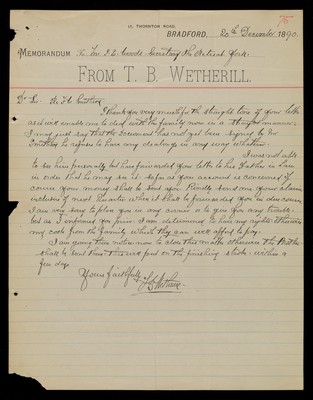 75
21, THORNTON ROAD,
BRADFORD, 20th December 1890
MEMORANDUM To Mr
Secretary The Retreat York
FROM T. B. WETHERILL.
Dr Sir.
I thank you very much for the straight tone of your letter
as it will enable me to deal with the family now in a
I may just say that the document has not yet been signed by Mr
he refuses to have any dealings in any way whatever.
I was not able
to see him personally but have forwarded your letter to his Father in law
in order that he may see it. So far as your account is concerned of
course your money shall be sent you. Kindly send me your claim
inclusive of next quarter when it shall be forwarded you in due course.
I am very sorry to place you in any
or to give you any trouble
but as I informed you
I am determined to have my rights
my costs from the family which they can well afford to pay.
I am giving them notice now to close this matter otherwise the
shall be sent them
will put on the finishing
within a
few days
Yours faithfully
T B Wetherill